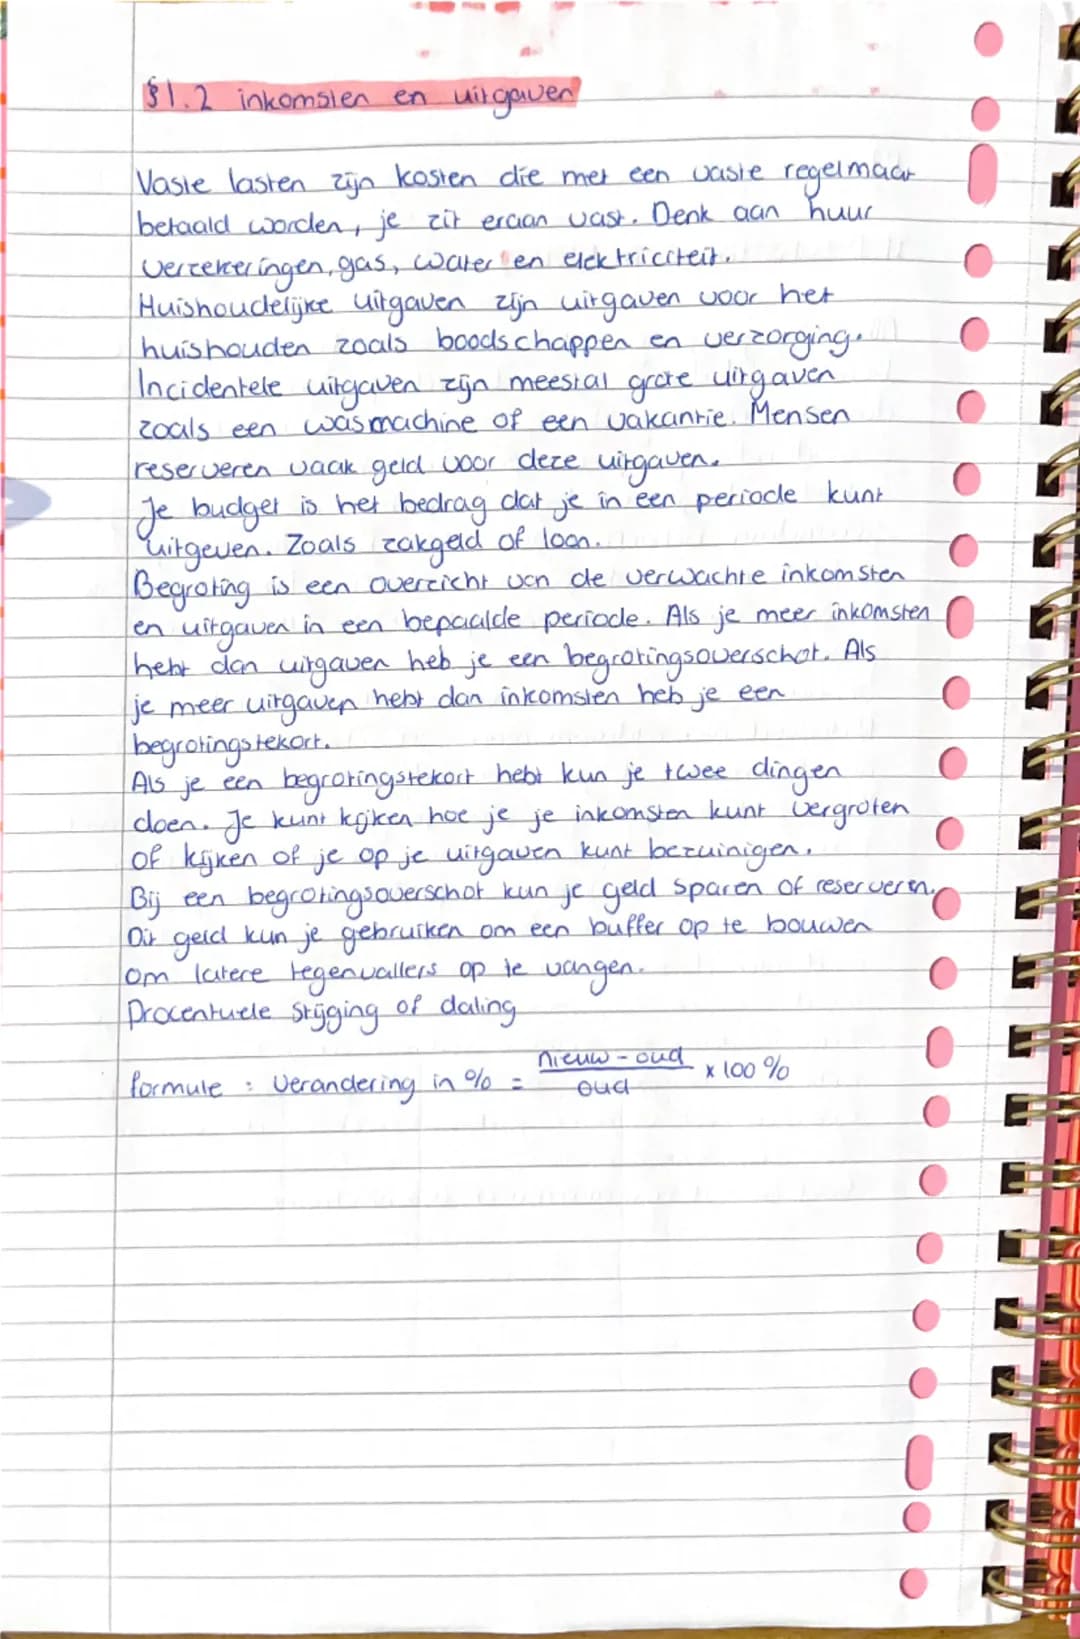 §1.2 inkomsten en uitgaven
Vaste lasten zijn kosten die met een vaste regelmaat
betaald worden, je zit eraan vast. Denk aan huur
verzekeringen, gas, water en elektriciteit.
Huishoudelijke uitgaven zijn uitgaven voor het
huishouden zoals boodschappen en verzorging.
Incidentele uitgaven zijn meestal grote uitgaven
zoals een wasmachine of een vakantie. Mensen
reserveren vaak geld voor deze uitgaven.
Je budget is het bedrag dat je in een periode kunt
uitgeven. Zoals zakgeld of loon.
Begroting is een overzicht van de verwachte inkomsten
en uitgaven in een bepaalde periode. Als je meer inkomsten
hebt dan uitgaven heb je een begrotingsoverschot. Als
je meer uitgaven hebt dan inkomsten heb je een
begrotingstekort.
Als je een begrotingstekort hebt kun je twee dingen
doen. Je kunt kijken hoe je je inkomsten kunt vergroten
of kijken of je op je uitgaven kunt bezuinigen.
Bij een begrotingsoverschot kun je geld sparen of reserveren.
Dit geld kun je gebruiken om een buffer op te bouwen
om latere tegenvallers op te vangen.
Procentuele stijging of daling
formule : Verandering in % = nieuw - oud / oud x 100 %